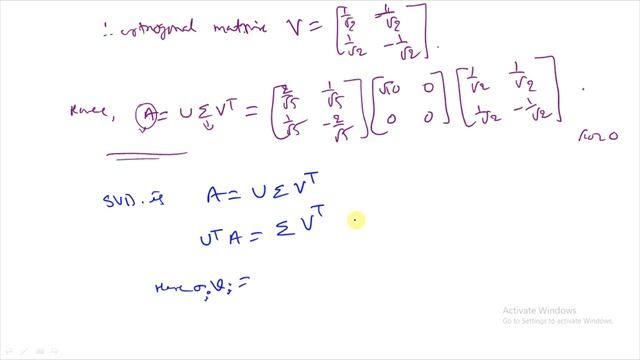 ∴ orthogonal matrix V = [1/√2 1/√2; 1/√2 -1/√2].
Hence, A = U Σ V^T = [2/√5 1/√5; 1/√5 -2/√5] [√10 0; 0 0] [1/√2 1/√2; 1/√2 -1/√2].
SVD. is A = U Σ V^T
U^T A = Σ V^T
Here σ_i v_i =
Activate Windows
Go to Settings to activate Windows.